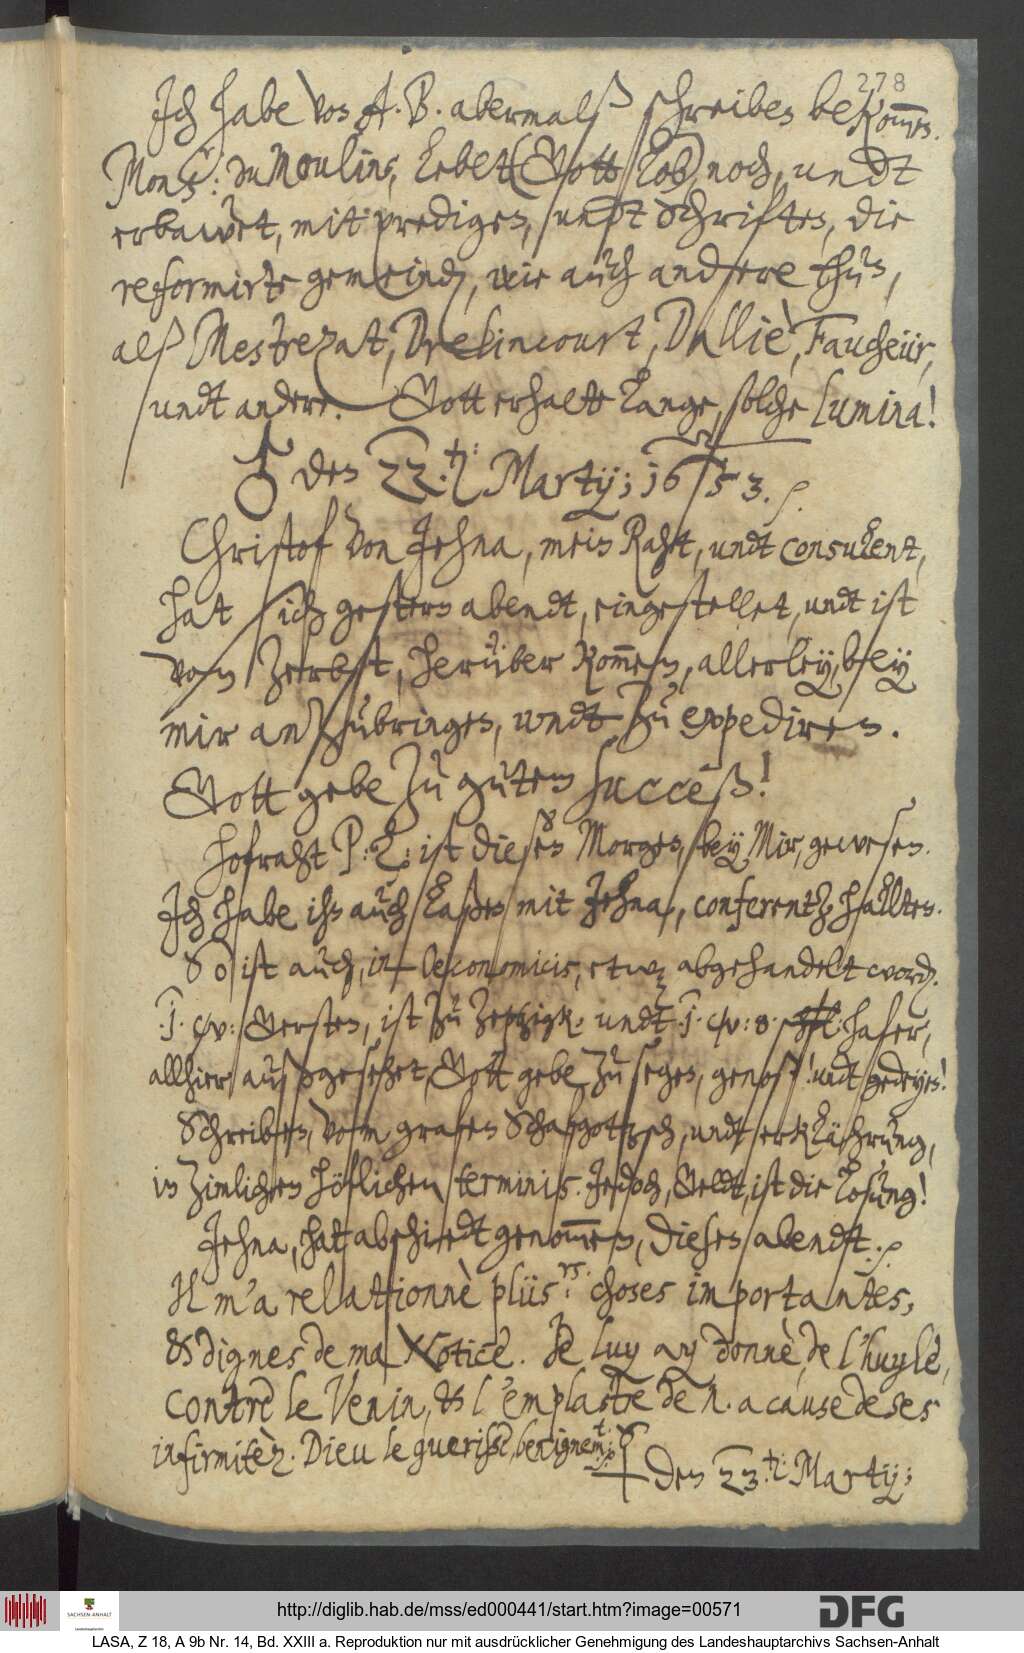 278
Ich habe von A. B. abermalß schreiben bekom̅en.
Mons.r: du Moulins, lebet (Gott lob) noch, undt
erbawet, mit predigen, undt Schriften, die
reformirte gemeinde, wie auch andere thun,
alß Mestrezat, Drelincourt, Dalliè, Faucheür,
undt andere. Gott erhalte lange, solche lumina!
♂ den 22.ten: Martij; 1653.
Christof von Jehna, mein Raht, undt consulent,
hat sich gestern abendt, eingestellet, undt ist
von Zerbst, herüber kom̅en, allerley, bey
mir anzubringen, undt zu expediren.
Gott gebe zu gutem Succeß!
Hofraht P: L: ist diesen Morgen, bey Mir, gewesen.
Ich habe ihn auch laßen mit Jehna, conferentz hallten.
So ist auch, in Oeconomicis, etwaz abgehandelt word.
.1. w: Gersten, ist zu Zeptzigk. undt .1. w: 8. schfl: hafer,
allhier außgesehet, Gott gebe zu segen, genoß! undt gedeyen!
Schreiben, vom grafen Schafgotzsch, undt erklährung,
in zimlichen höflichen terminis. Jedoch, Geldt, ist die losung!
Jehna, hat abschiedt genom̅en, diesen abendt.
Il m'a relationnè plüs.rs: choses importantes,
& dignes de ma Notice. Je luy ay donnè, de l'huyle,
contre le Venin, & l'emplastre de N. a cause de ses
infirmitèz. Dieu le guerisse, benignem.t:
☿ den 23.ten: Martij;
http://diglib.hab.de/mss/ed000441/start.htm?image=00571
SACHSEN-ANHALT
Landeshauptarchiv
DFG
LASA, Z 18, A 9b Nr. 14, Bd. XXIII a. Reproduktion nur mit ausdrücklicher Genehmigung des Landeshauptarchivs Sachsen-Anhalt